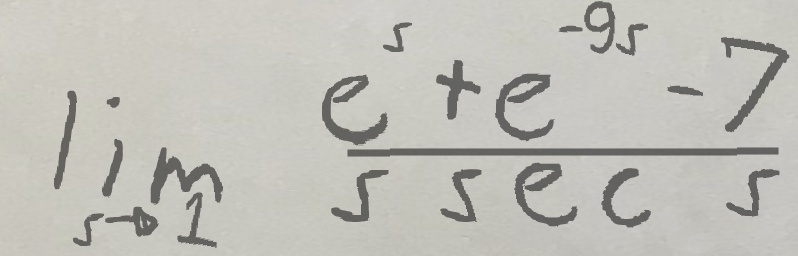 \lim_{s \to 1} \frac{e^{s} + e^{-9s} - 7}{s \sec s}